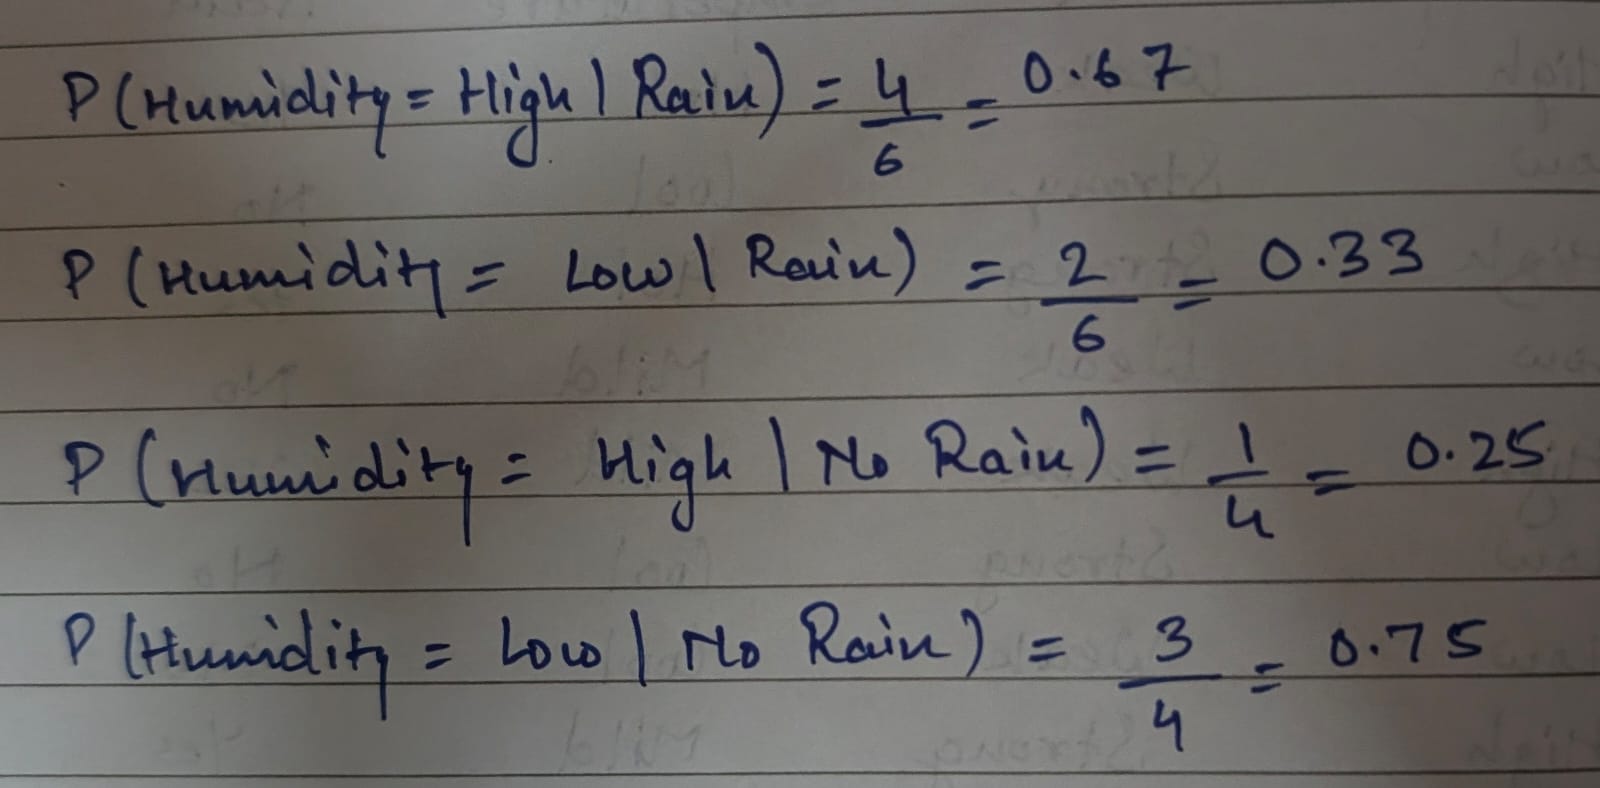 P(Humidity = High | Rain) = 4/6 = 0.67
P (Humidity = Low | Rain) = 2/6 = 0.33
P (Humidity = High | No Rain) = 1/4 = 0.25
P (Humidity = Low | No Rain) = 3/4 = 0.75